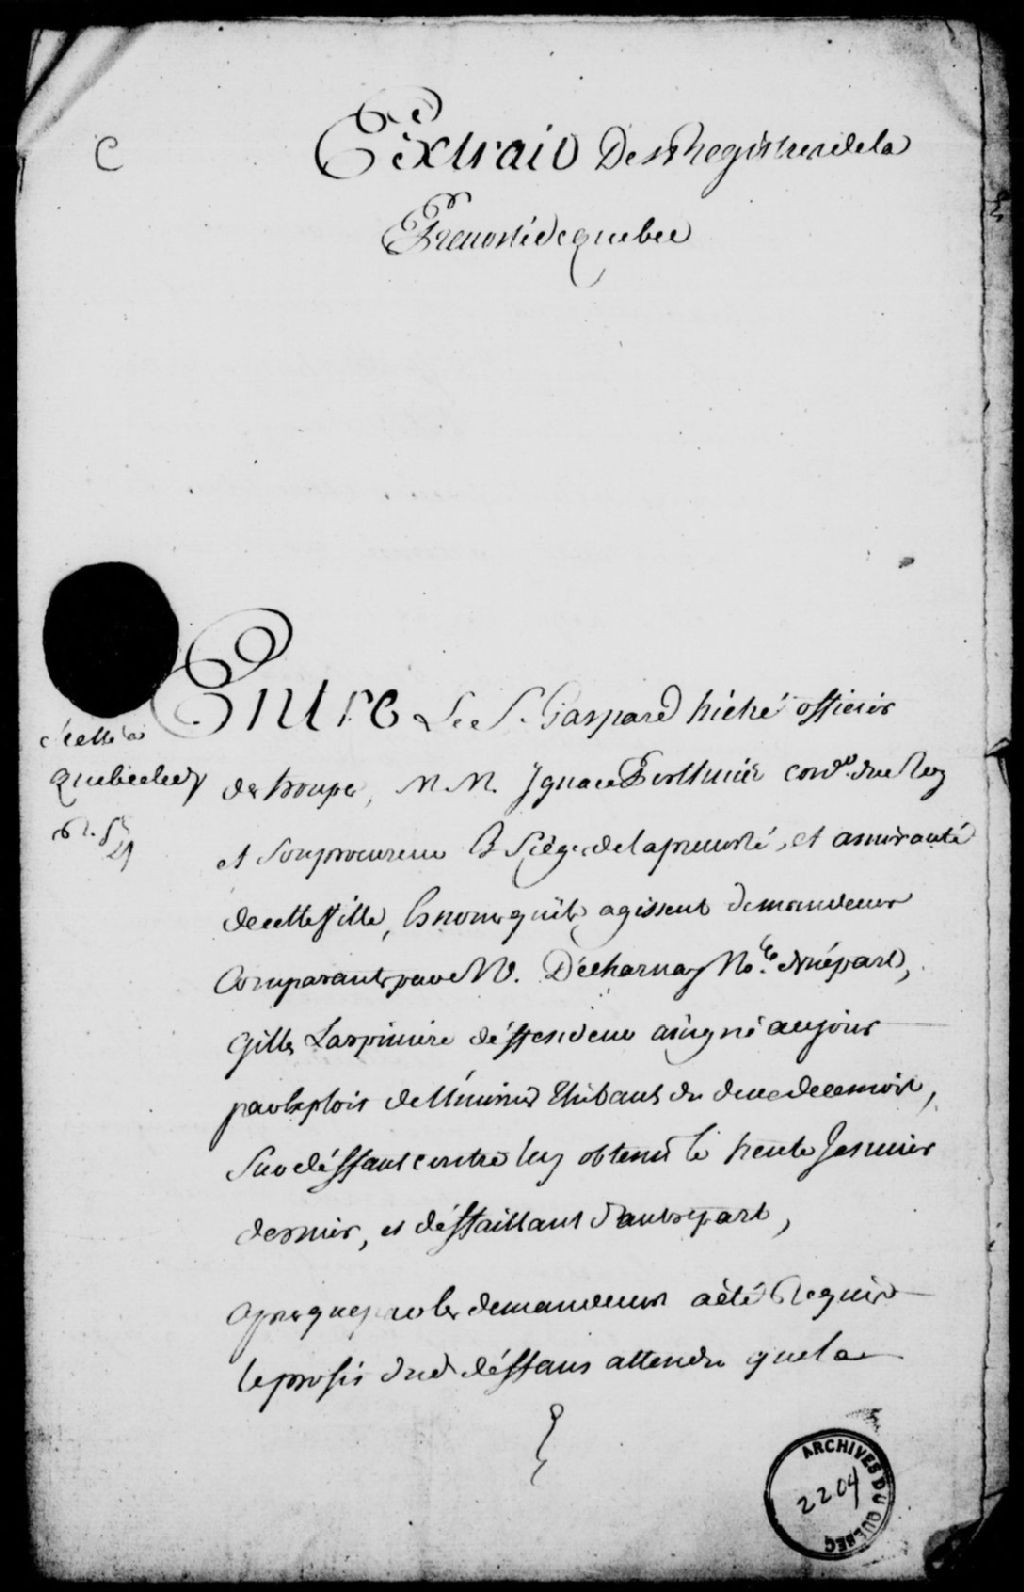 C
Extrait Des Registres de la
Prevosté de quebec
Scellé a
quebec led. j.
Entre Le S. Gaspard hiché officier
de troupes, M. M. Ignace Perthuis Cons.er du Roy
et Son procureur Es Siège de la prevosté, et amirauté
de cette Ville, Es noms qu'ils agissent demandeurs
Comparants par M.e Décharnay No.re d'une part,
Gilles Laspiniere déffendeur assigné au jour
par Exploit de l'huissier Thibault du deux de ce mois,
Sur déffaut contre luy obtenu le trente Janvier
dernier, et déffaillant d'autre part,
Apres que par les demandeurs a été Requis
le profit dud. déffaut attendu que la
ARCHIVES DU QUÉBEC
2204